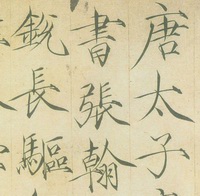 唐太子
書張翰
銳長驅